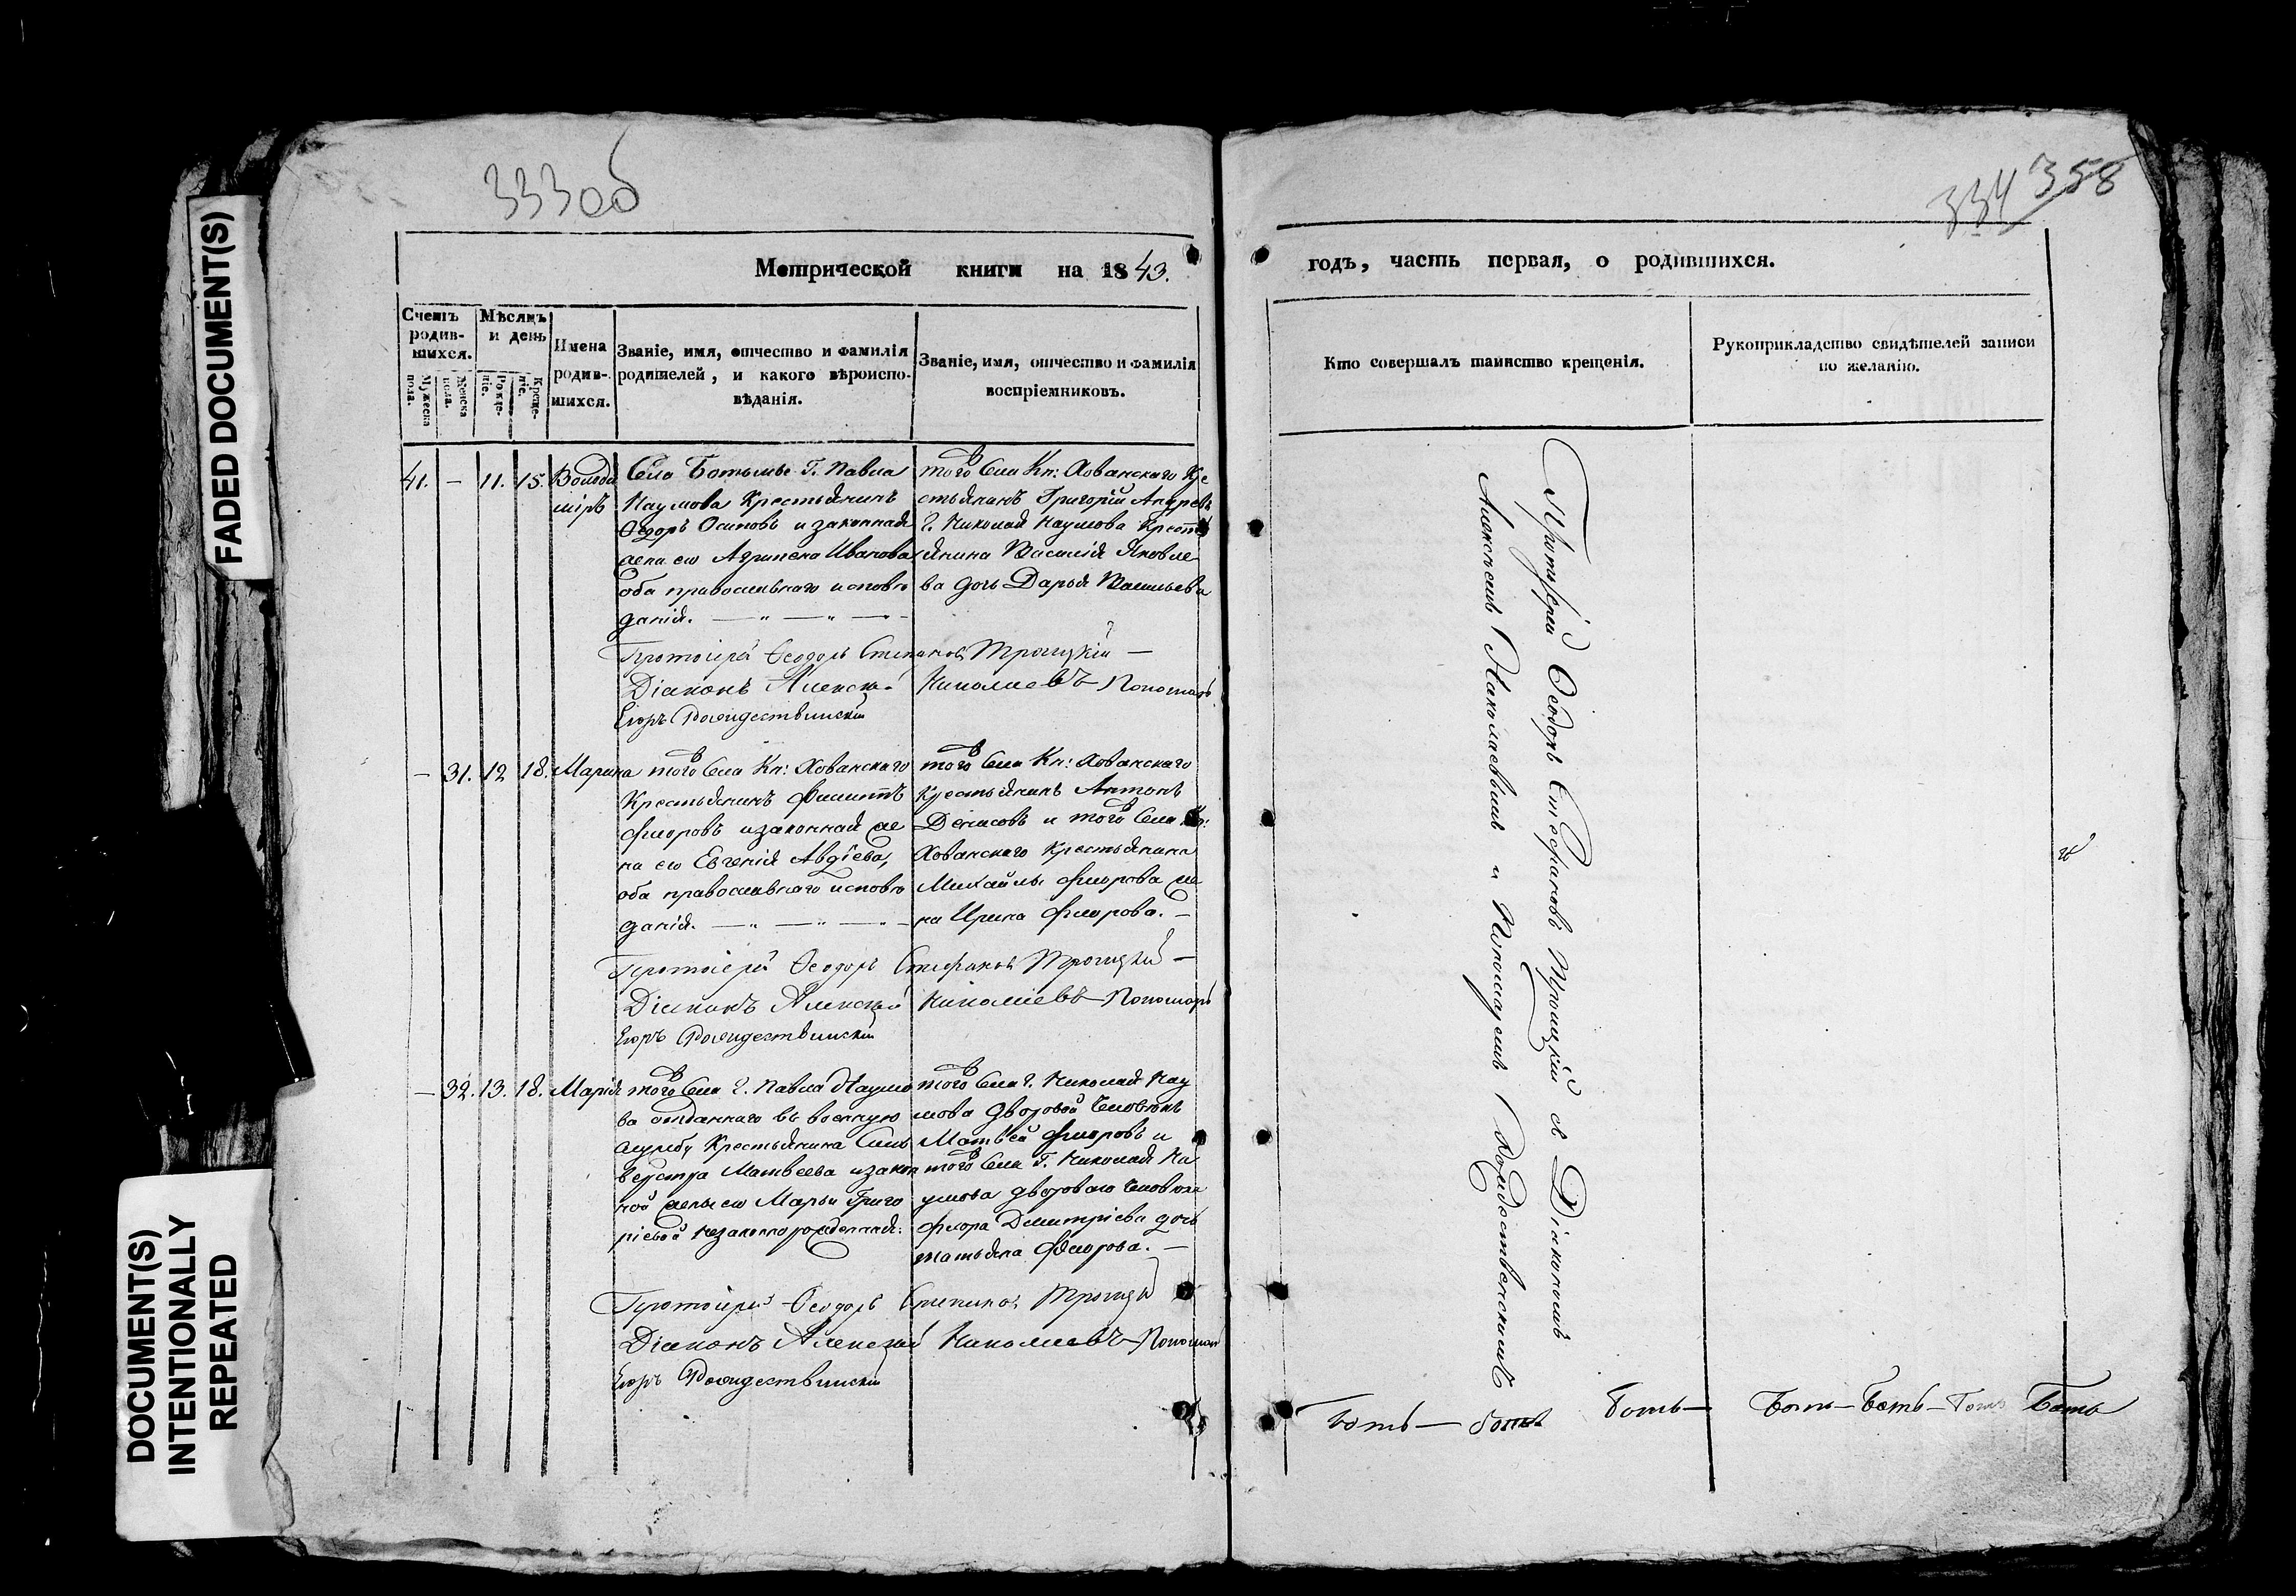 FADED DOCUMENT(S)
DOCUMENT(S)
INTENTIONALLY
REPEATED
333об
334 358
Метрической книги на 1843.
годъ, часть первая, о родившихся.
Счетъ родив-шихся.
Мужеска пола.
Женска пола.
Мѣсяцъ и день
Рожде-ніе.
Креще-ніе.
Имена родив-шихся.
Званіе, имя, отчество и фамилія
родителей, и какого вѣроиспо-
вѣданія.
Званіе, имя, отчество и фамилія
воспріемниковъ.
Кто совершалъ таинство крещенія.
Рукоприкладство свидѣтелей записи
по желанію.
41. — 11. 15. Володи
міръ
Села Г. Павла
Наумова Крестьянинъ
Ѳедоръ Осиповъ и законная
жена его Агрипена Иванова
оба православнаго исповѣ
данія.
того Села Кн: Хованскаго Кре
стьянинъ Григорій Андреевъ
Г. Николая Наумова Крестъ
янина Василія Яковле
ва дочь Дарья Васильева
Протоіерей Ѳеодоръ Стефановъ Троицкій —
Діаконъ Алексѣй Николаевъ Пономарь
Егоръ Рождественскій
— 31. 12 18. Марина
того Села Кн: Хованскаго
Крестьянинъ Филиппъ
Флоровъ и законная же
на его Евгенія Авдіева,
оба православнаго исповѣ
данія.
того Села Кн: Хованскаго
Крестьянинъ Антонъ
Денисовъ и того Села Кн:
Хованскаго Крестьянина
Михайлы Флорова же
на Ирина Флорова. —
Протоіерей Ѳеодоръ Стефановъ Троицкій —
Діаконъ Алексѣй Николаевъ Пономарь
Егоръ Рождественскій
— 32. 13. 18. Марія
того Села Г. Павла Наумо
ва отданнаго въ военную
службу Крестьянина Силь
вестра Матвеева и закон
ной жены его Марьи Григо
ріевой незаконнорожденная.
того Села Г. Николая Нау
мова дворовой Человѣкъ
Матвѣй Флоровъ и
того Села Г. Николая На
умова двороваго Человѣка
Флора Димитріева дочь
Татьяна Флорова. —
Протоіерей Ѳеодоръ Стефановъ Троицкій
Діаконъ Алексѣй Николаевъ Пономарь
Егоръ Рождественскій
Протоіерей Ѳеодоръ Стефановъ Троицкій съ Діакономъ
Алексѣемъ Николаевымъ и Пономаремъ Рождественскимъ